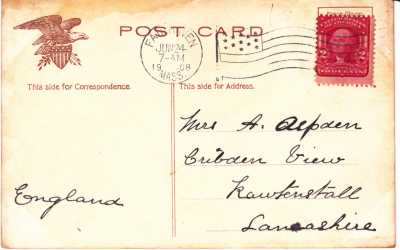 POST CARD
FALL RIVEN
JUN 24
7-AM
1908
MASS.
This side for Correspondence.
This side for Address.
Mrs A. Aspden
Cribden View
Rawtenstall
Lancashire
England